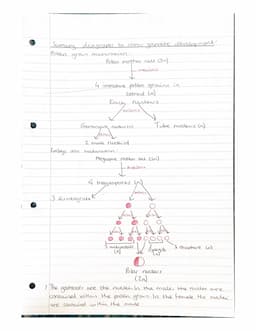 Summary diagrams to show gamete development:
Pollen grain maturation
Pollen mother cell (2n)
meiosis
4 immature pollen grains in
tetrad (n)
Each nucleus
mitosis
Generative nucleus
Tube nucleus (n)
mitosis
2 male
Embryo sac maturation:
Megaspore mother cell (2n)
meiosis
4 megaspores (n)
3 disintegrate
mitosis
3 antipodals (n)
2 synergids (n)
Polar nucleus
(2n)
The gametes are the nuclei. In the male, the nuclei are
contained within the pollen grain. In the female the nuclei
are contained within the ovule